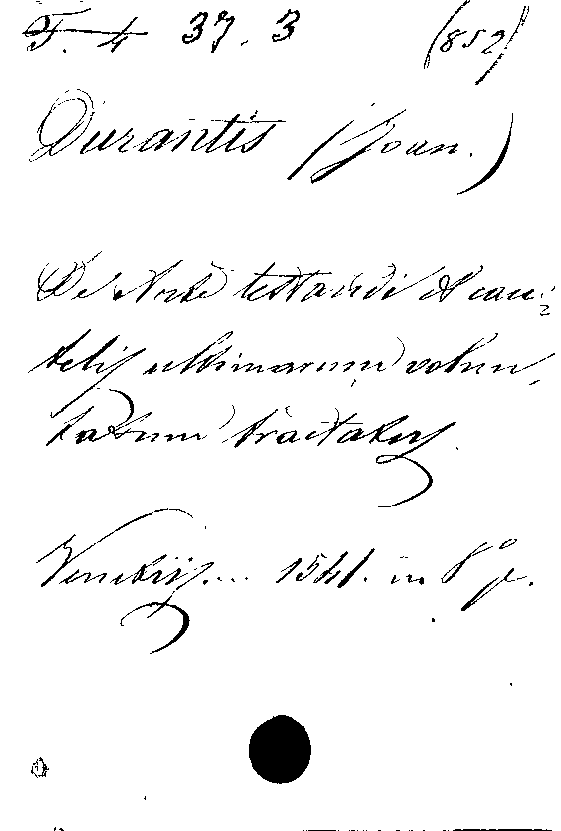 F. 4 37. 3 (852)
Durantis (Joan.)
De Arte testandi et cau-
telis ultimarum volun,
tatum tractatus.
Venetiis... 1541. in 8º p.